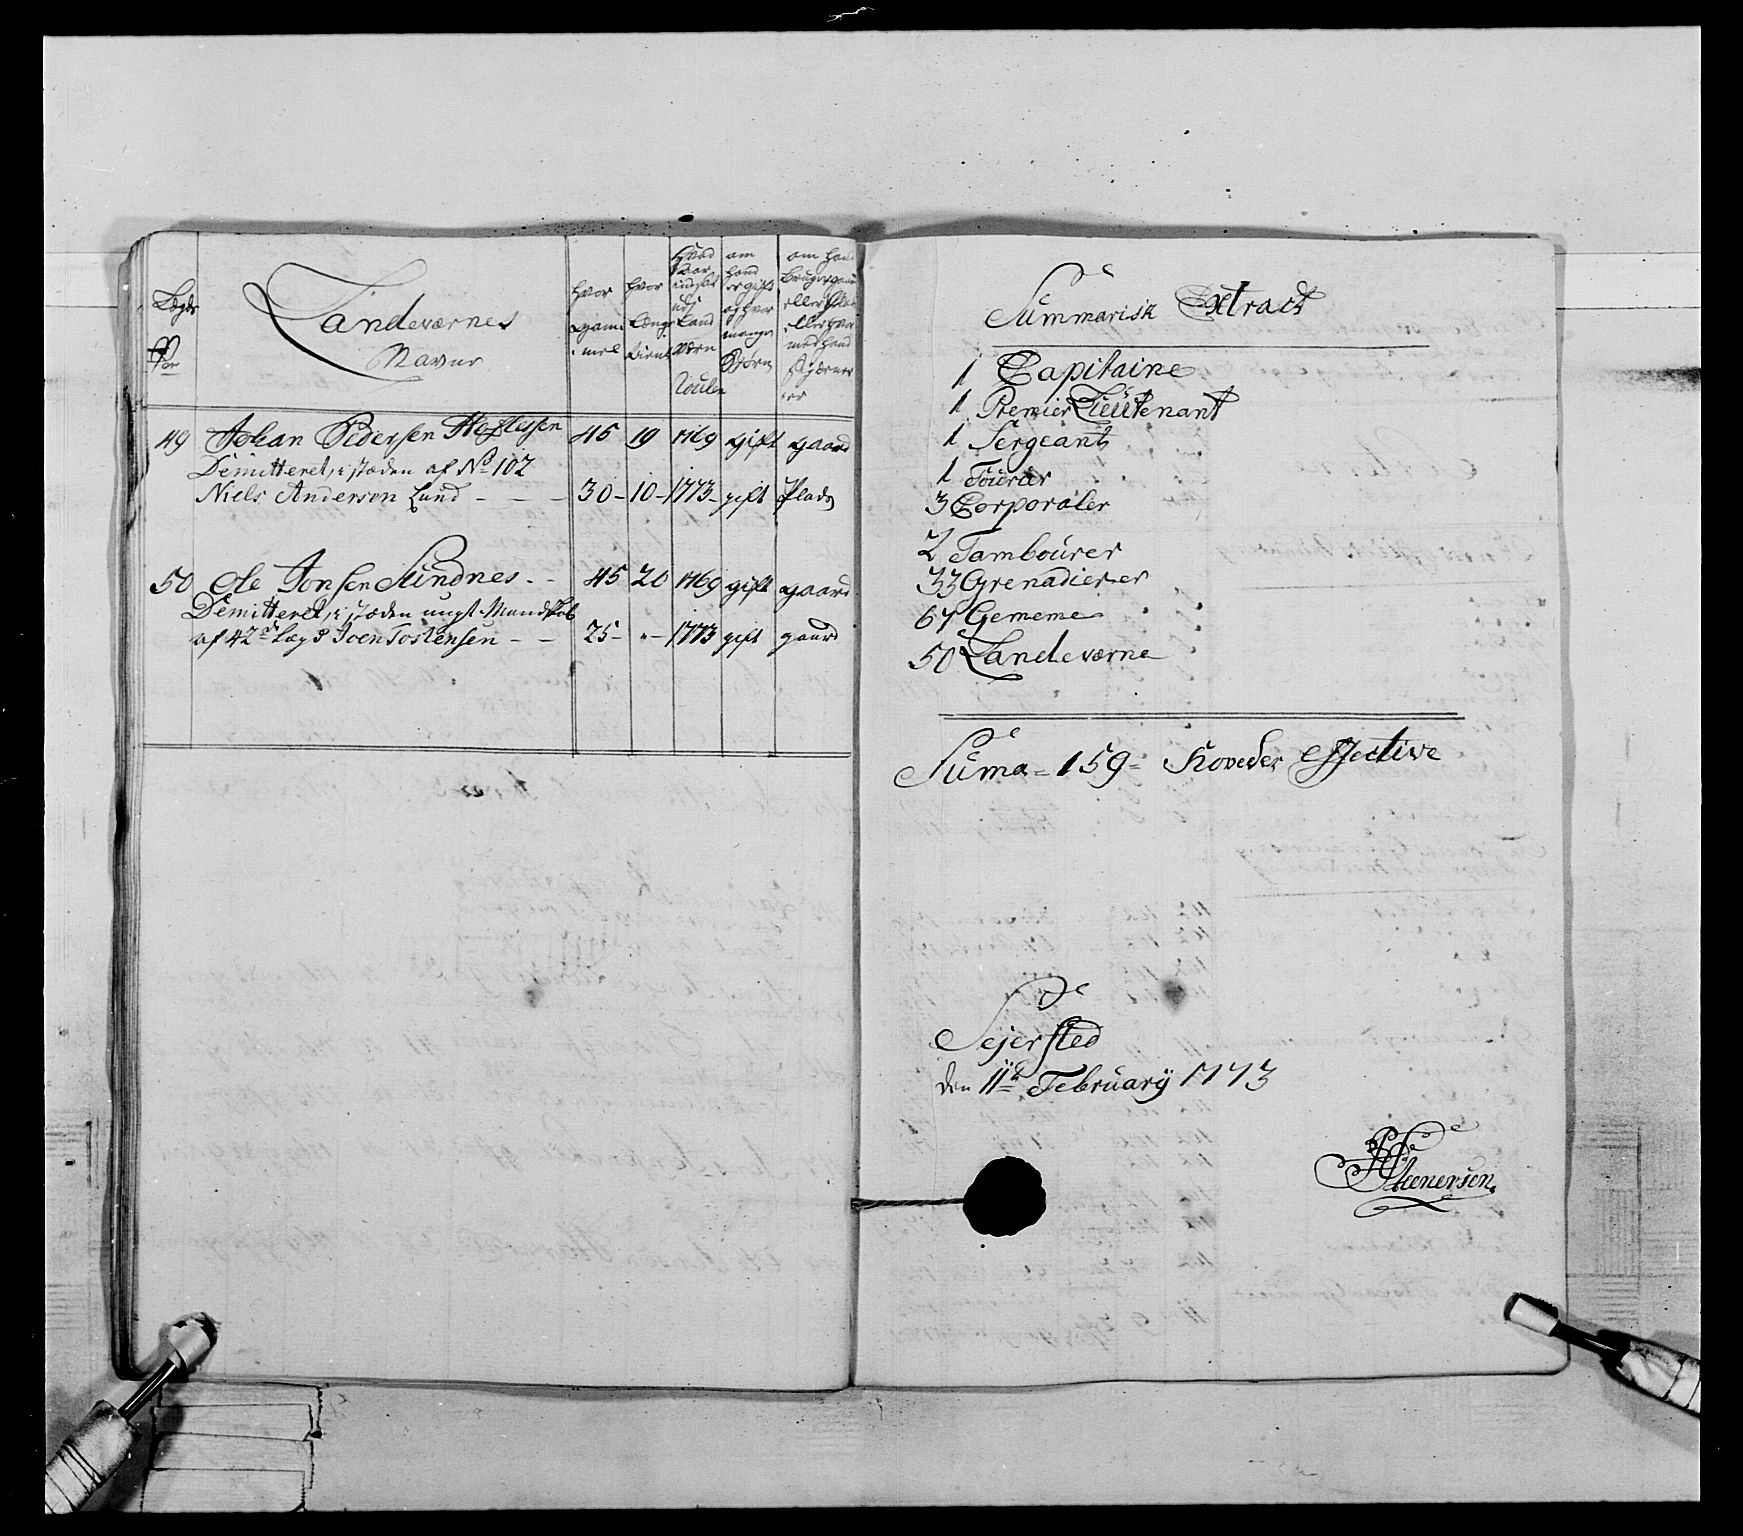 Lægds
No
Landeværnes
Navne
hvor
gam
mel
hvor
længe
tient
hvad
Aar
indsat
udj
Land
Værn
Roulen
om
hand
er gift
og hvor
mange
Børn
om hand
Bruger gaard
eller Plads
eller hvor
med hand
sig nærer
49 Johan Pedersen 45 19 1769 gift gaard
Demitteret, i stæden af No 102
Niels Andersen Lund - - - 30 - 10 - 1773 - gift Plads
50 Ole Jonsen Sundnes - - 45 20 1769 gift gaard
Demitteret, i stæden ungt Mandskab
af 42de læg Joen Tostensen - - 25 - " - 1773 gift gaard
Summarisk Extract
1 Capitaine
1 Premier Lieutenant
1 Sergeant
1 Fourer
3 Corporaler
2 Tambourer
33 Grenadierer
67 Gemene
50 Landeværne
Suma = 159 = Hoveder effective
Sejersted
den 11te February 1773
Steenersen